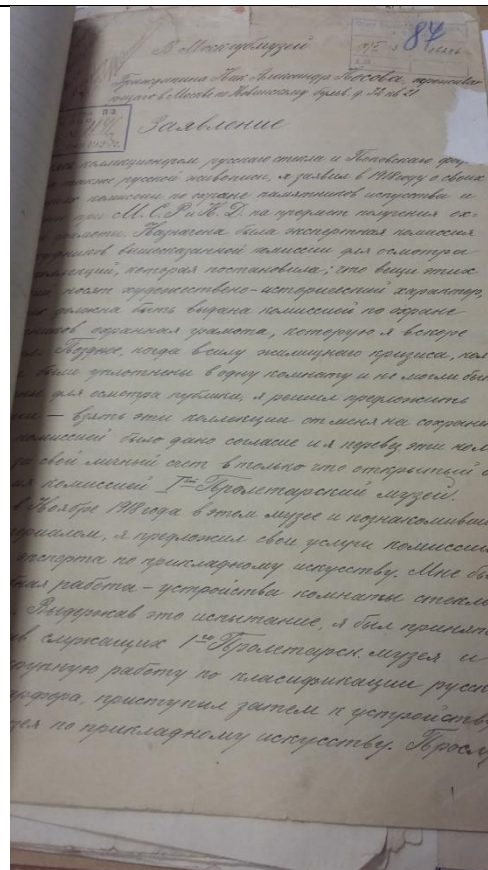 87
В Москубмузей
Гражданина Ник. Александр. Носова, прожива-
ющаго в Москве по Новинскому бульв. д. 32 кв 21
Заявление
коллекционером русскаго стекла и Поповскаго фар
также русской живописи, я заявил в 1918 году о своих
комиссии по охране памятников искусства и
при М.С.Р. и К.Д. на предмет получения ох-
грамоты. Назначена была экспертная комиссия
вышесказанной комиссии для осмотра
коллекций, которая постановила: что вещи этих
носят художественно-исторический характер,
должна быть выдана комиссией по охране
охранная грамота, которую я вскоре
Позднее, когда в силу жилищнаго кризиса, кол
были уплотнены в одну комнату и не могли быть
для осмотра публики, я решил предложить
— взять эти коллекции от меня на сохранен
комиссией было дано согласие и я перевез эти кол
свой личный счет в только что открытый
комиссией 1ый Пролетарский музей.
в Ноябре 1918 года в этом музее и познакомивши
я предложил свои услуги комиссии
эксперта по прикладному искусству. Мне бы
работа – устройства комнаты стекла
Выдержав это испытание, я был принят
служащих 1го Пролетарск. музея и
крупную работу по класификации русск
фарфора, приступил затем к устройству
по прикладному искусству. Прослу